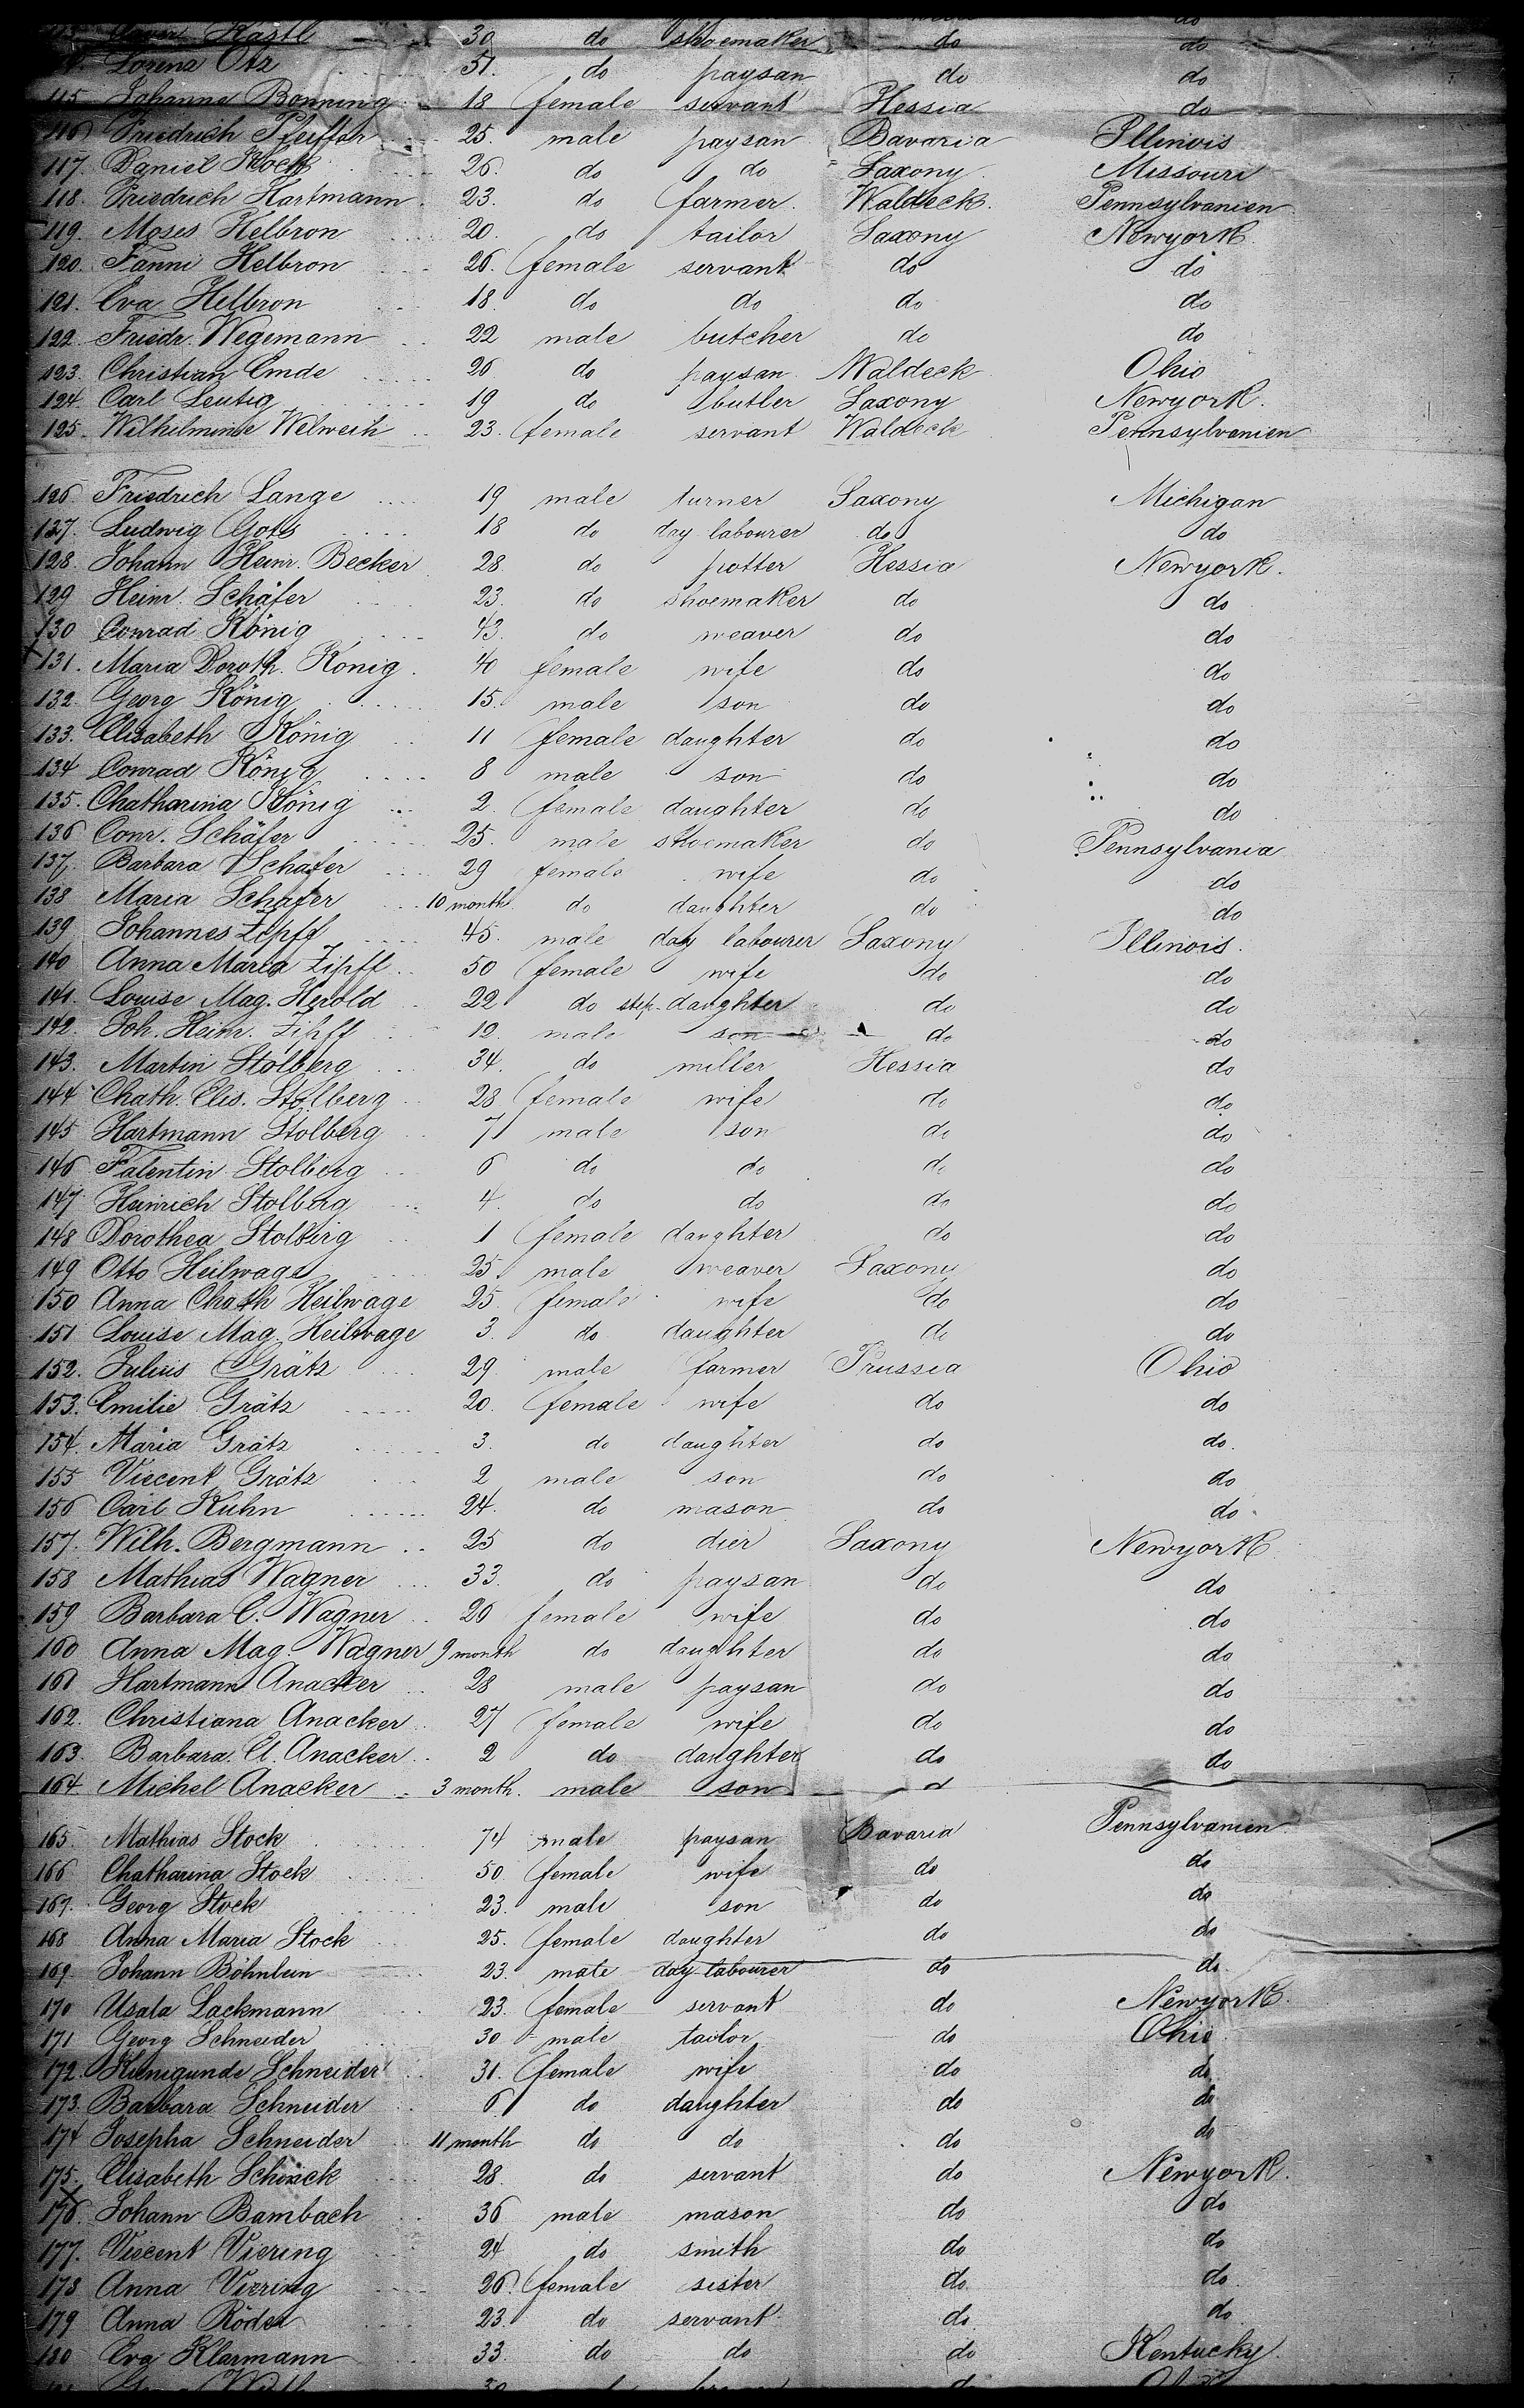 Kastl 30 do shoemaker do do
Lorena Otz 51. do paysan do do
115 Johanna Bonning 18 female servant Hessia do
116 Friedrich Pfeiffer 25. male paysan Bavaria Illinois
117. Daniel Kock 26. do do Saxony Missouri
118. Friedrich Hartmann 23. do farmer. Waldeck. Pennsylvanien
119. Moses Helbron 20. do tailor Saxony Newyork
120. Fanni Helbron 26. female servant do do
121. Eva Helbron 18 do do do do
122. Friedr. Wegemann 22 male butcher do do
123. Christian Emde 26 do paysan Waldeck Ohio
124. Carl Leutig 19 do butler Saxony Newyork.
125. Wilhelmine Welweih 23. female servant Waldeck Pennsylvanien
126. Friedrich Lange 19 male turner Saxony Michigan
127. Ludwig Gots 18 do day labourer do do
128. Johann Heinr. Becker 28. do potter Hessia Newyork.
129 Heinr. Schäfer 23. do shoemaker do do
130 Conrad König 43. do weaver do do
131. Maria Doroth. König. 40 female wife do do
132. Georg König 15. male son do do
133. Elisabeth König 11 female daughter do do
134 Conrad König 8 male son do do
135. Chatharina König 2. female daughter do do
136 Conr. Schäfer 25. male shoemaker do Pennsylvania
137. Barbara Schafer 29 female wife do do
138 Maria Schafer 10 month do daughter do do
139 Johannes Zipff 45. male day labourer Saxony Illinois.
140 Anna Maria Zipff 50 female wife do do
141. Louise Mag. Herold 22 do step-daughter do do
142. Joh. Heinr. Zipff 12. male son do do
143. Martin Stolberg 34. do miller Hessia do
144 Chath. Elis. Stolberg 28 female wife do do
145 Hartmann Stolberg 7 male son do do
146 Falentin Stolberg 6 do do do do
147 Heinrich Stolberg 4. do do do do
148 Dorothea Stolberg 1 female daughter do do
149 Otto Heilwage 25. male weaver Saxony do
150 Anna Chath Heilwage 25. female wife do do
151 Louise Mag. Heilwage 3. do daughter do do
152. Julius Grätz 29. male farmer Prussia Ohio
153. Emilie Grätz 20. female wife do do
154. Maria Grätz 3. do daughter do do.
155 Viecent Grätz 2 male son do do
156 Carl Kuhn 24. do mason do do
157. Wilh. Bergmann 25 do dier Saxony Newyork
158 Mathias Wagner 33. do paysan do do
159 Barbara C. Wagner 26 female wife do do
160 Anna Mag. Wagner 9 month do daughter do do
161 Hartmann Anacker 28 male paysan do do
162. Christiana Anacker 27 female wife do do
163. Barbara. El. Anacker 2 do daughter do do
164. Michel Anacker 3 month. male son d
165. Mathias Stock 74 male paysan Bavaria Pennsylvanien
166 Chatharina Stock 50. female wife do do
167. Georg Stock 23. male son do do
168 Anna Maria Stock 25. female daughter do do
169. Johann Böhnlein 23. male day-labourer do do
170 Usala Lackmann 23. female servant do Newyork.
171 Georg Schneider 30 male tailor do Ohio.
172. Kunigunde Schneider 31. female wife do do
173. Barbara Schneider 6 do daughter do do
174 Josepha Schneider 11 month do do do do
175. Elisabeth Schinck 28. do servant do Newyork.
176. Johann Bambach 36 male mason do do
177. Viecent Viering 24 do smith do do
178 Anna Viering 26. female sister do. do.
179 Anna Röder 23. do servant do. do
180 Eva Klarmann 33. do do do Kentucky.